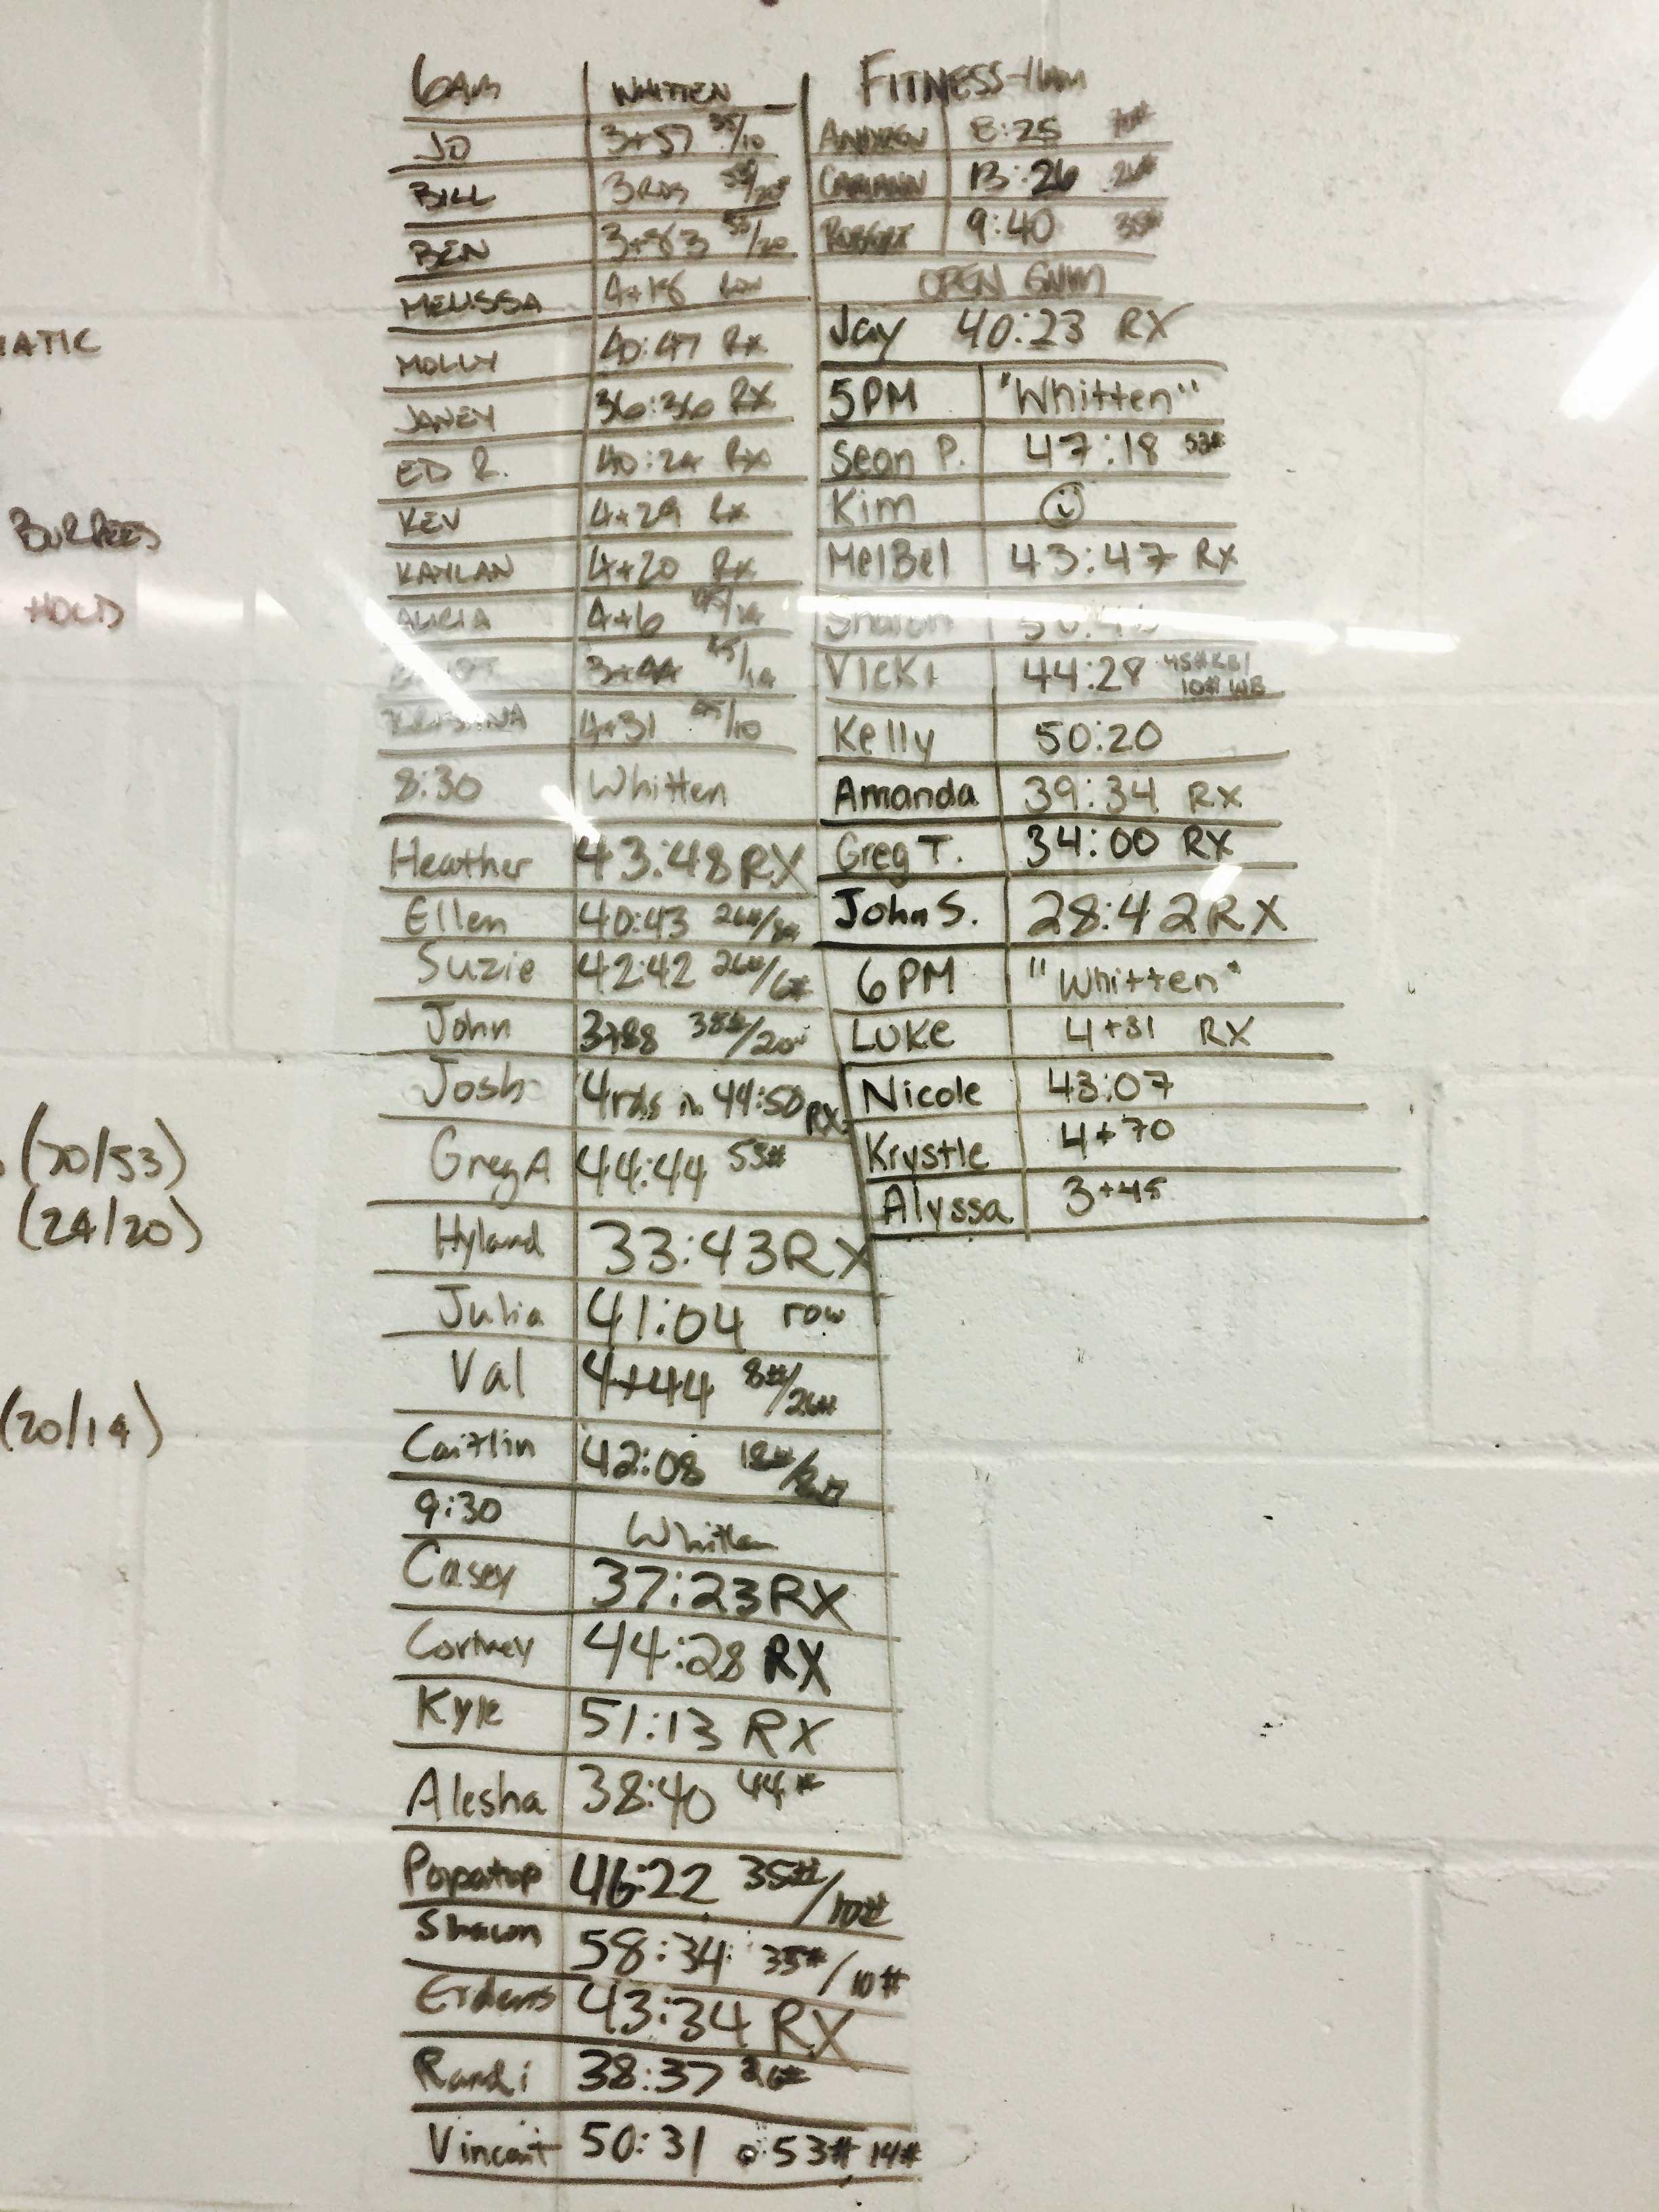 6AM WHITTEN
JO 3+57 35/10
BILL 3RDS
BEN 3+83 53/20
MELISSA 4+18
MOLLY 40:47 Rx
JANEY 36:36 RX
ED R. 40:24 Rx
KEV 4+29 Rx
KAYLAN 4+20 Rx
ALICIA 4+6
3+44
4+31 /10
8:30 Whitten
Heather 43:48 RX
Ellen 40:43 26#/8#
Suzie 42:42 26#/6#
John 3+88 35#/20#
Josh 4rds in 44:50 RX
Greg A 44:44 53#
Hyland 33:43 RX
Julia 41:04 row
Val 4+44 8#/26#
Caitlin 42:08 18#
9:30 Whitten
Casey 37:23 RX
Cortney 44:28 RX
Kyle 51:13 RX
Alesha 38:40 44#
Papatop 46:22 35#/10#
Shawn 58:34 35#/10#
43:34 RX
Randi 38:37 26#
Vincent 50:31 53# 14#
FITNESS
ANDREW 8:25
13:26 26#
ROBERT 9:40 35#
OPEN GYM
Jay 40:23 RX
5PM "Whitten"
Sean P. 47:18 53#
Kim
MelBel 43:47 RX
Sharon
Vicki 44:28 45#KB/
10# WB
Kelly 50:20
Amanda 39:34 RX
Greg T. 34:00 RX
John S. 28:42 RX
6PM "Whitten"
LUKE 4+31 RX
Nicole 43:07
Krystle 4+70
Alyssa 3+45
MATIC
BURPEES
HOLD
(70/53)
(24/20)
(20/14)